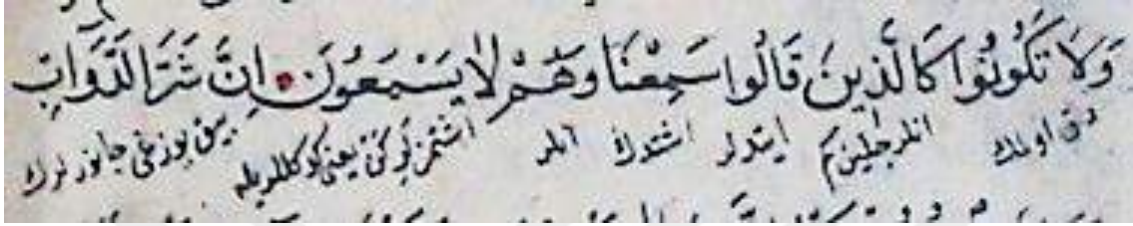 وَلَا تَكُونُوا كَالَّذِينَ قَالُوا سَمِعْنَا وَهُمْ لَا يَسْمَعُونَ اِنَّ شَرَّ الدَّوَابِّ
دقی اولمك انلر جلین كم ایتدلر اشتدك انلر اشتمزلركن یعنی كوكللریله جانورلرك